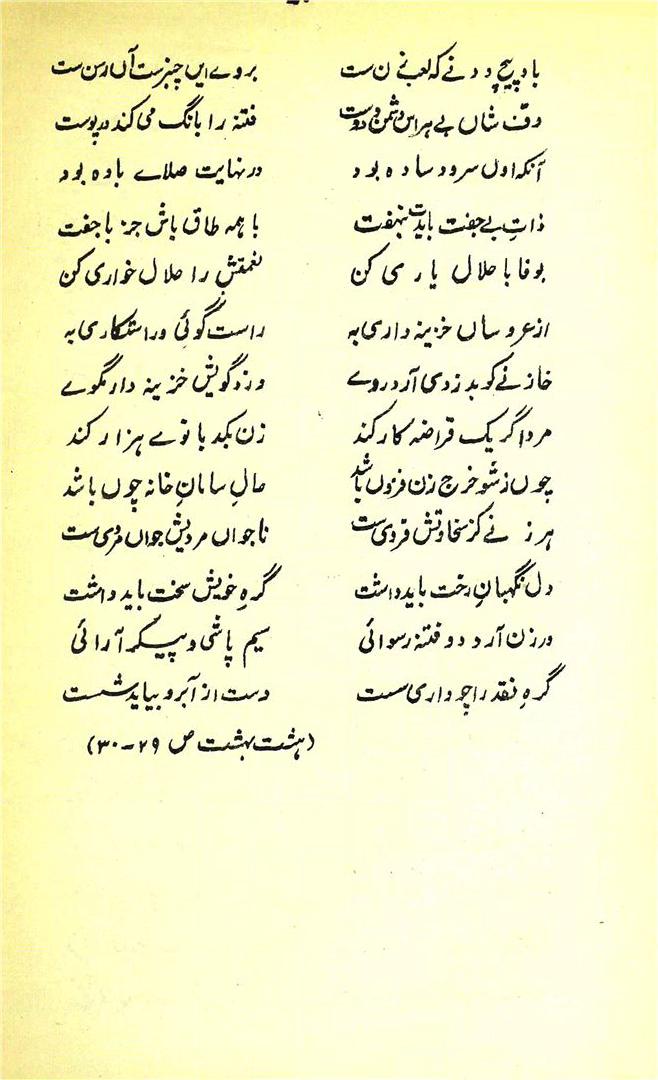 باد پیچ و دونے کہ لعب زن ست بروے ایں چنبرست آں رسن ست
دف شاں بے ہراس دشمن و دوست فتنہ را بانگ می کند در پوست
آنکہ اول سرود سادہ بود در نہایت صلاے بادہ بود
ذاتِ بے جفت بایدت نہفت با ہمہ طاق باش جز با جفت
بوفا با حلال یاری کن نعمتش را حلال خواری کن
از عروساں خزینہ داری بہ راست گوئی و راستکاری بہ
خازنے کو بدزدی آرد روے دزد گویش خزینہ دار مگوے
مرد اگر یک قراضہ کار کند زن بکدبانوے ہزار کند
چوں ز شو خرج زن فزوں باشد حالِ سامانِ خانہ چوں باشد
ہر زنے کز سخاوتش فردی ست ناجواں مردیش جواں مردی ست
دل نگہبانِ رخت باید داشت گرہِ خویش سخت باید داشت
در زن آرد دو فتنہ رسوائی سیم پاشی و پیکر آرائی
گرہِ نقد را چو داری سست دست از آبرو بباید شست
(ہشت بہشت ص ۲۹-۳۰)